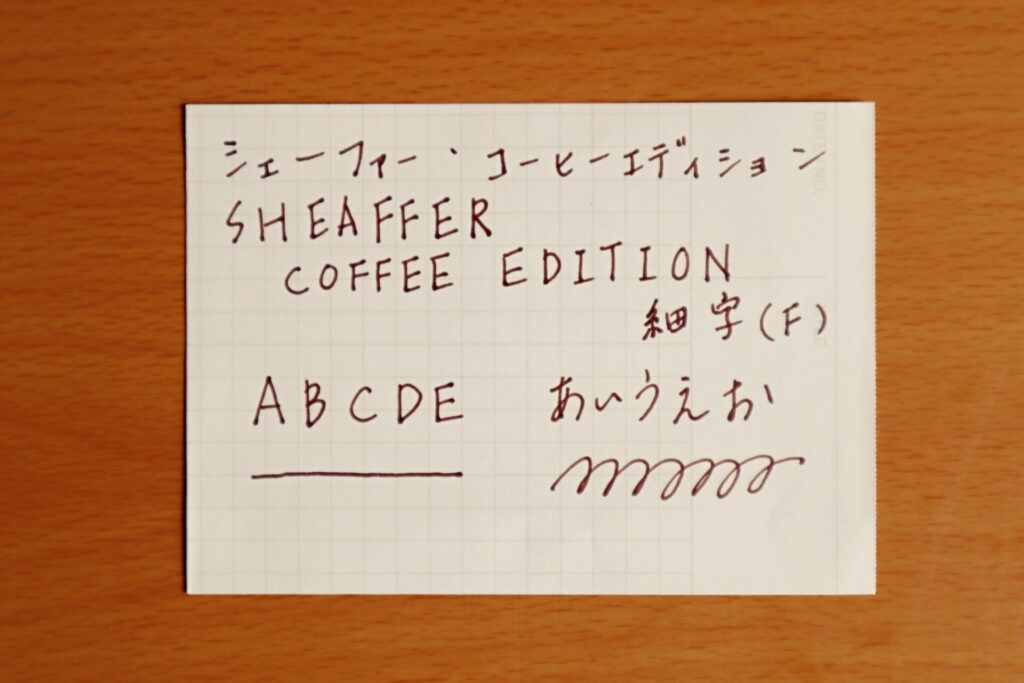 シェーファー・コーヒーエディション
SHEAFFER
COFFEE EDITION
細字(F)
ABCDE あいうえお